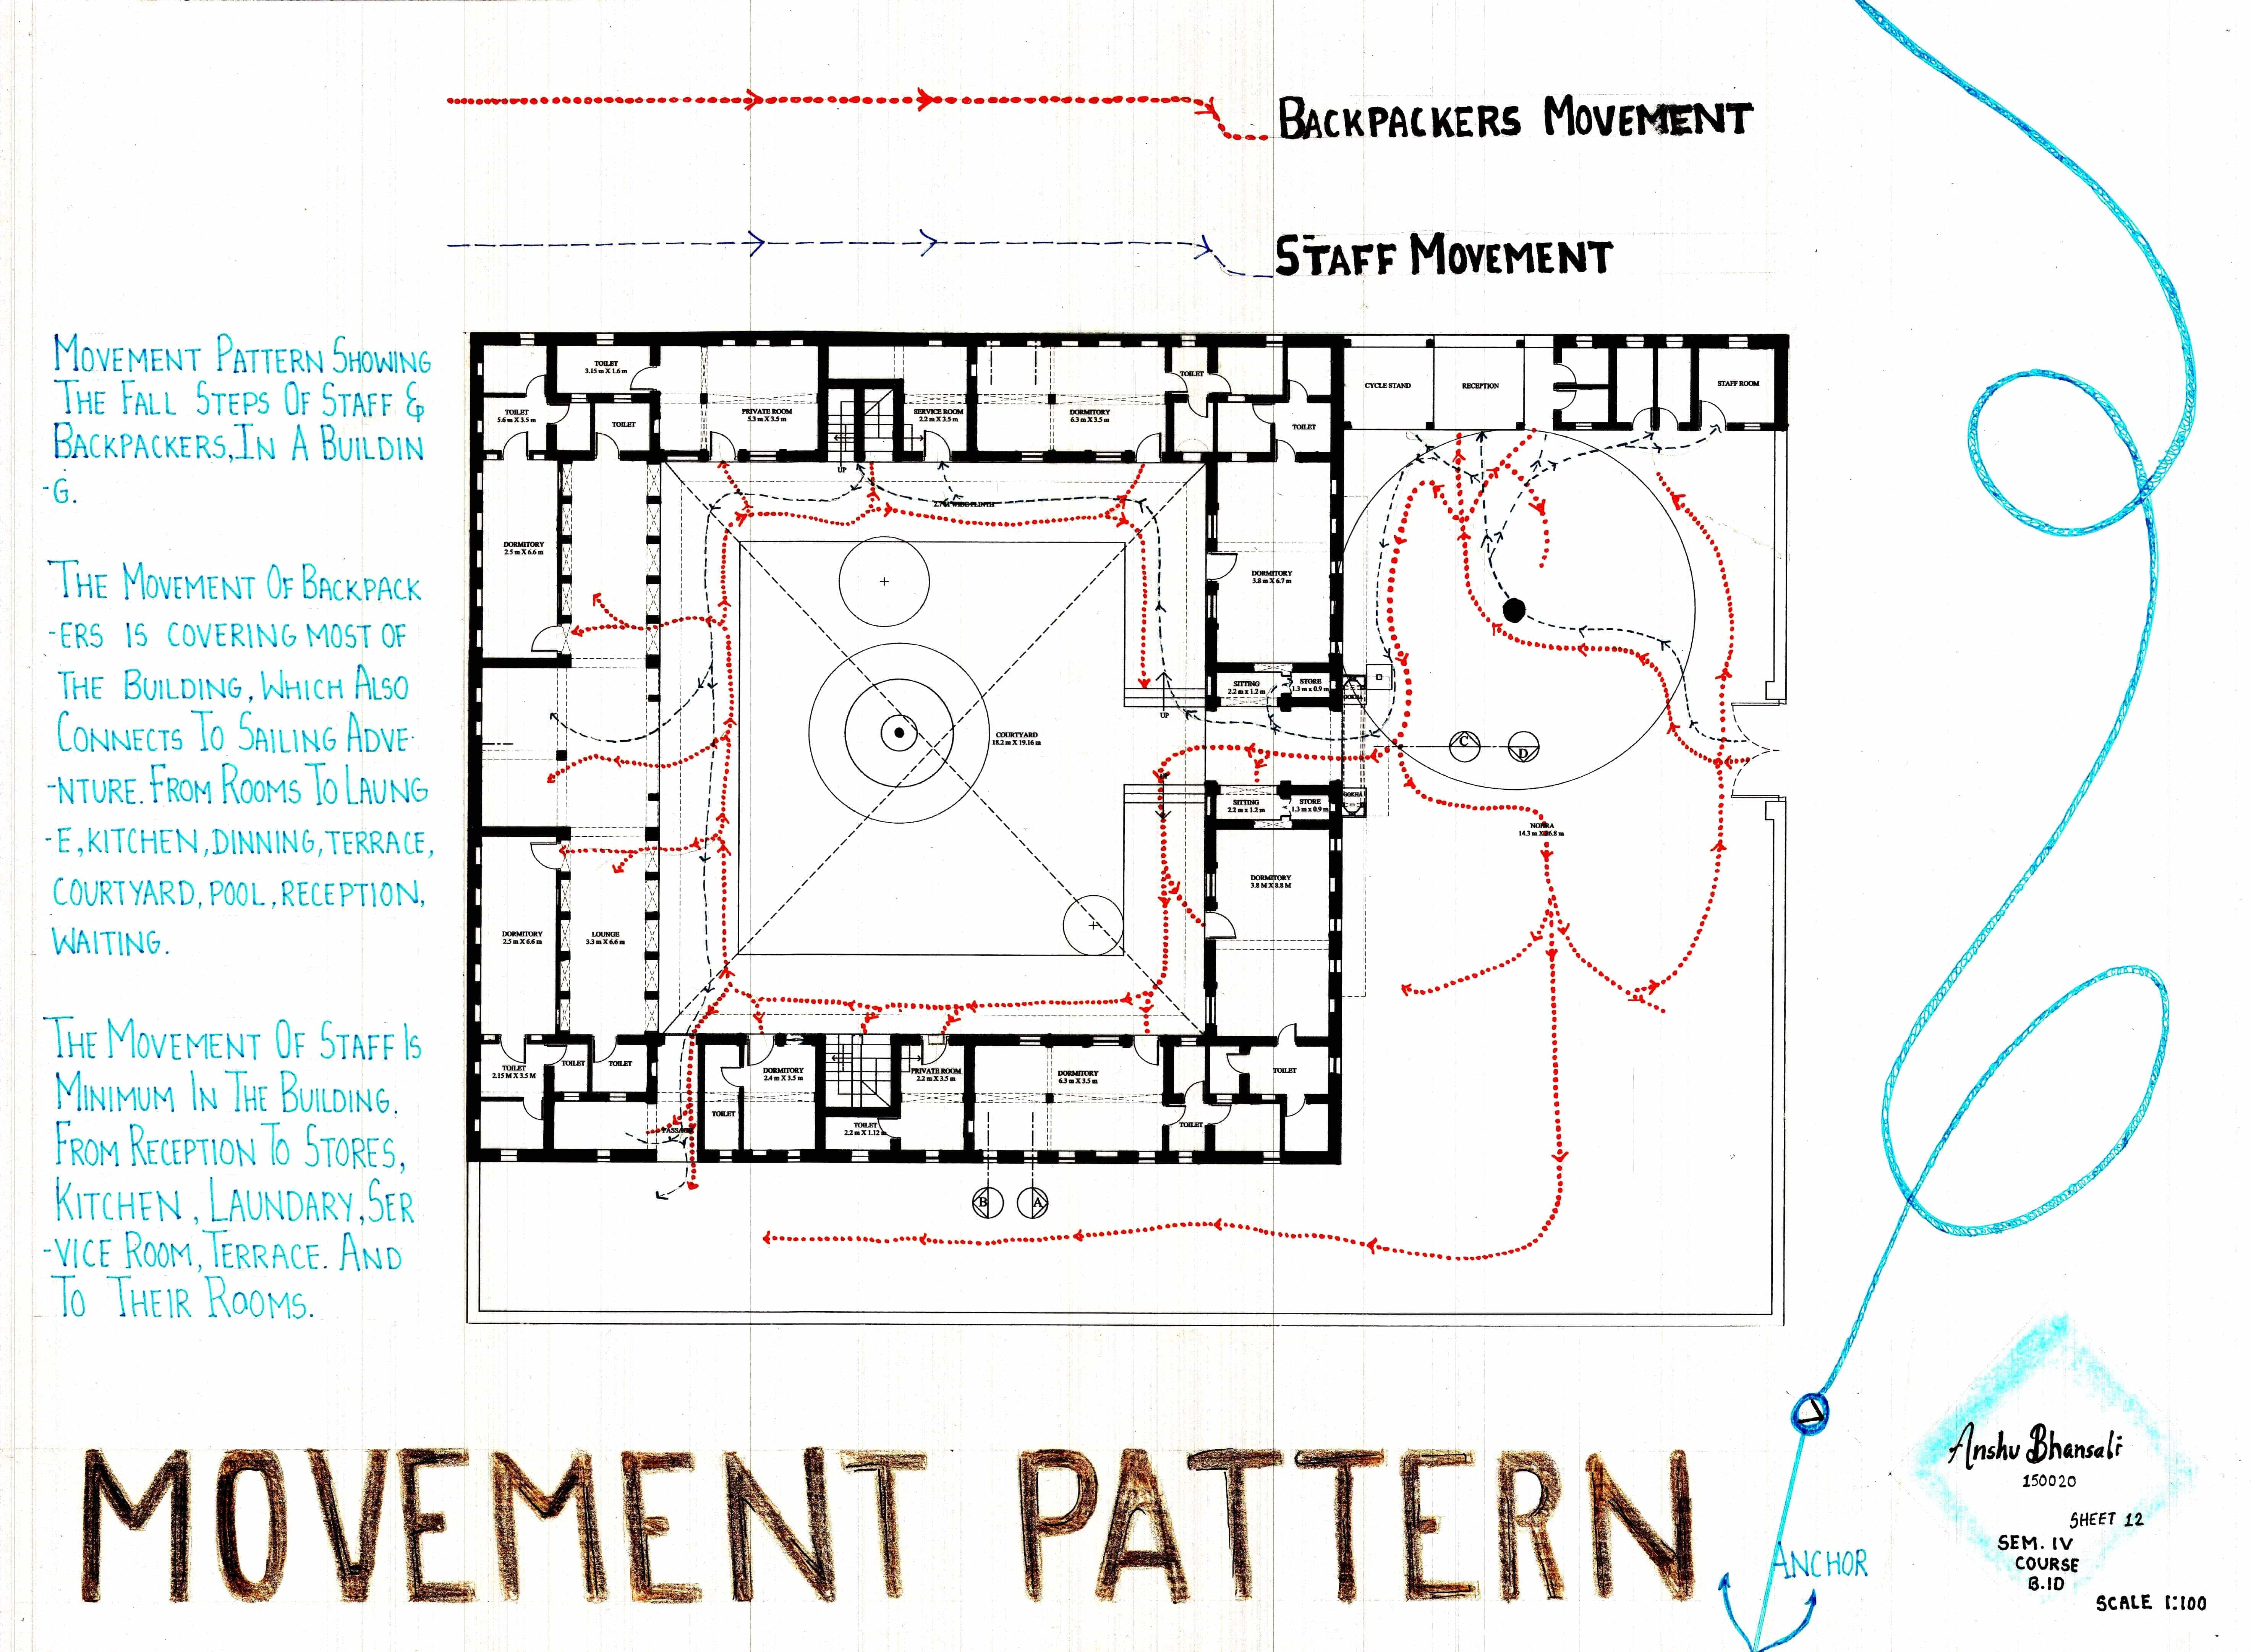 BACKPACKERS MOVEMENT
STAFF MOVEMENT
MOVEMENT PATTERN SHOWING
THE FALL STEPS OF STAFF &
BACKPACKERS, IN A BUILDIN
-G.
THE MOVEMENT OF BACKPACK
-ERS IS COVERING MOST OF
THE BUILDING, WHICH ALSO
CONNECTS TO SAILING ADVE-
-NTURE. FROM ROOMS TO LAUNG
-E, KITCHEN, DINNING, TERRACE,
COURTYARD, POOL, RECEPTION,
WAITING.
THE MOVEMENT OF STAFF IS
MINIMUM IN THE BUILDING.
FROM RECEPTION TO STORES,
KITCHEN, LAUNDARY, SER
-VICE ROOM, TERRACE. AND
TO THEIR ROOMS.
TOILET
3.15 m X 1.6 m
TOILET
5.6 m X 3.5 m
TOILET
PRIVATE ROOM
5.3 m X 3.5 m
UP
SERVICE ROOM
2.2 m X 3.5 m
DORMITORY
6.3 m X 3.5 m
TOILET
TOILET
CYCLE STAND
RECEPTION
STAFF ROOM
DORMITORY
2.5 m X 6.6 m
DORMITORY
3.8 m X 6.7 m
SITTING
2.2 m x 1.2 m
STORE
1.3 m x 0.9 m
UP
COURTYARD
18.2 m X 19.16 m
C
D
SITTING
2.2 m x 1.2 m
STORE
1.3 m x 0.9 m
GOKHA
NOHRA
DORMITORY
3.8 M X 8.8 M
DORMITORY
2.5 m X 6.6 m
LOUNGE
3.3 m X 6.6 m
TOILET
2.15 M X 3.5 M
TOILET
TOILET
DORMITORY
2.4 m X 3.5 m
TOILET
PRIVATE ROOM
2.2 m X 3.5 m
TOILET
2.2 m X 1.12 m
DORMITORY
6.3 m X 3.5 m
TOILET
TOILET
B
A
MOVEMENT PATTERN
ANCHOR
Anshu Bhansali
150020
SHEET 12
SEM. IV
COURSE
B.ID
SCALE 1:100